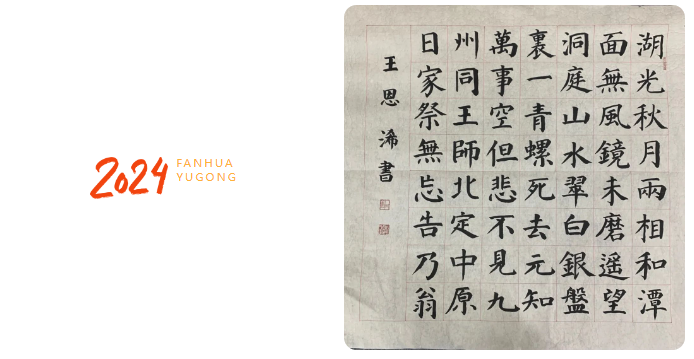 2024
FANHUA
YUGONG
湖光秋月兩相和潭
面無風鏡未磨遥望
洞庭山水翠白銀盤
裏一青螺死去元知
萬事空但悲不見九
州同王師北定中原
日家祭無忘告乃翁
王恩浠書